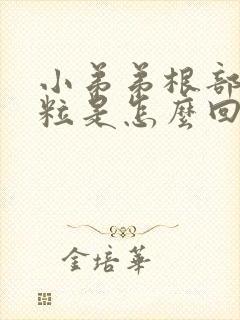 小弟弟根部
粒是怎麼回
金培華